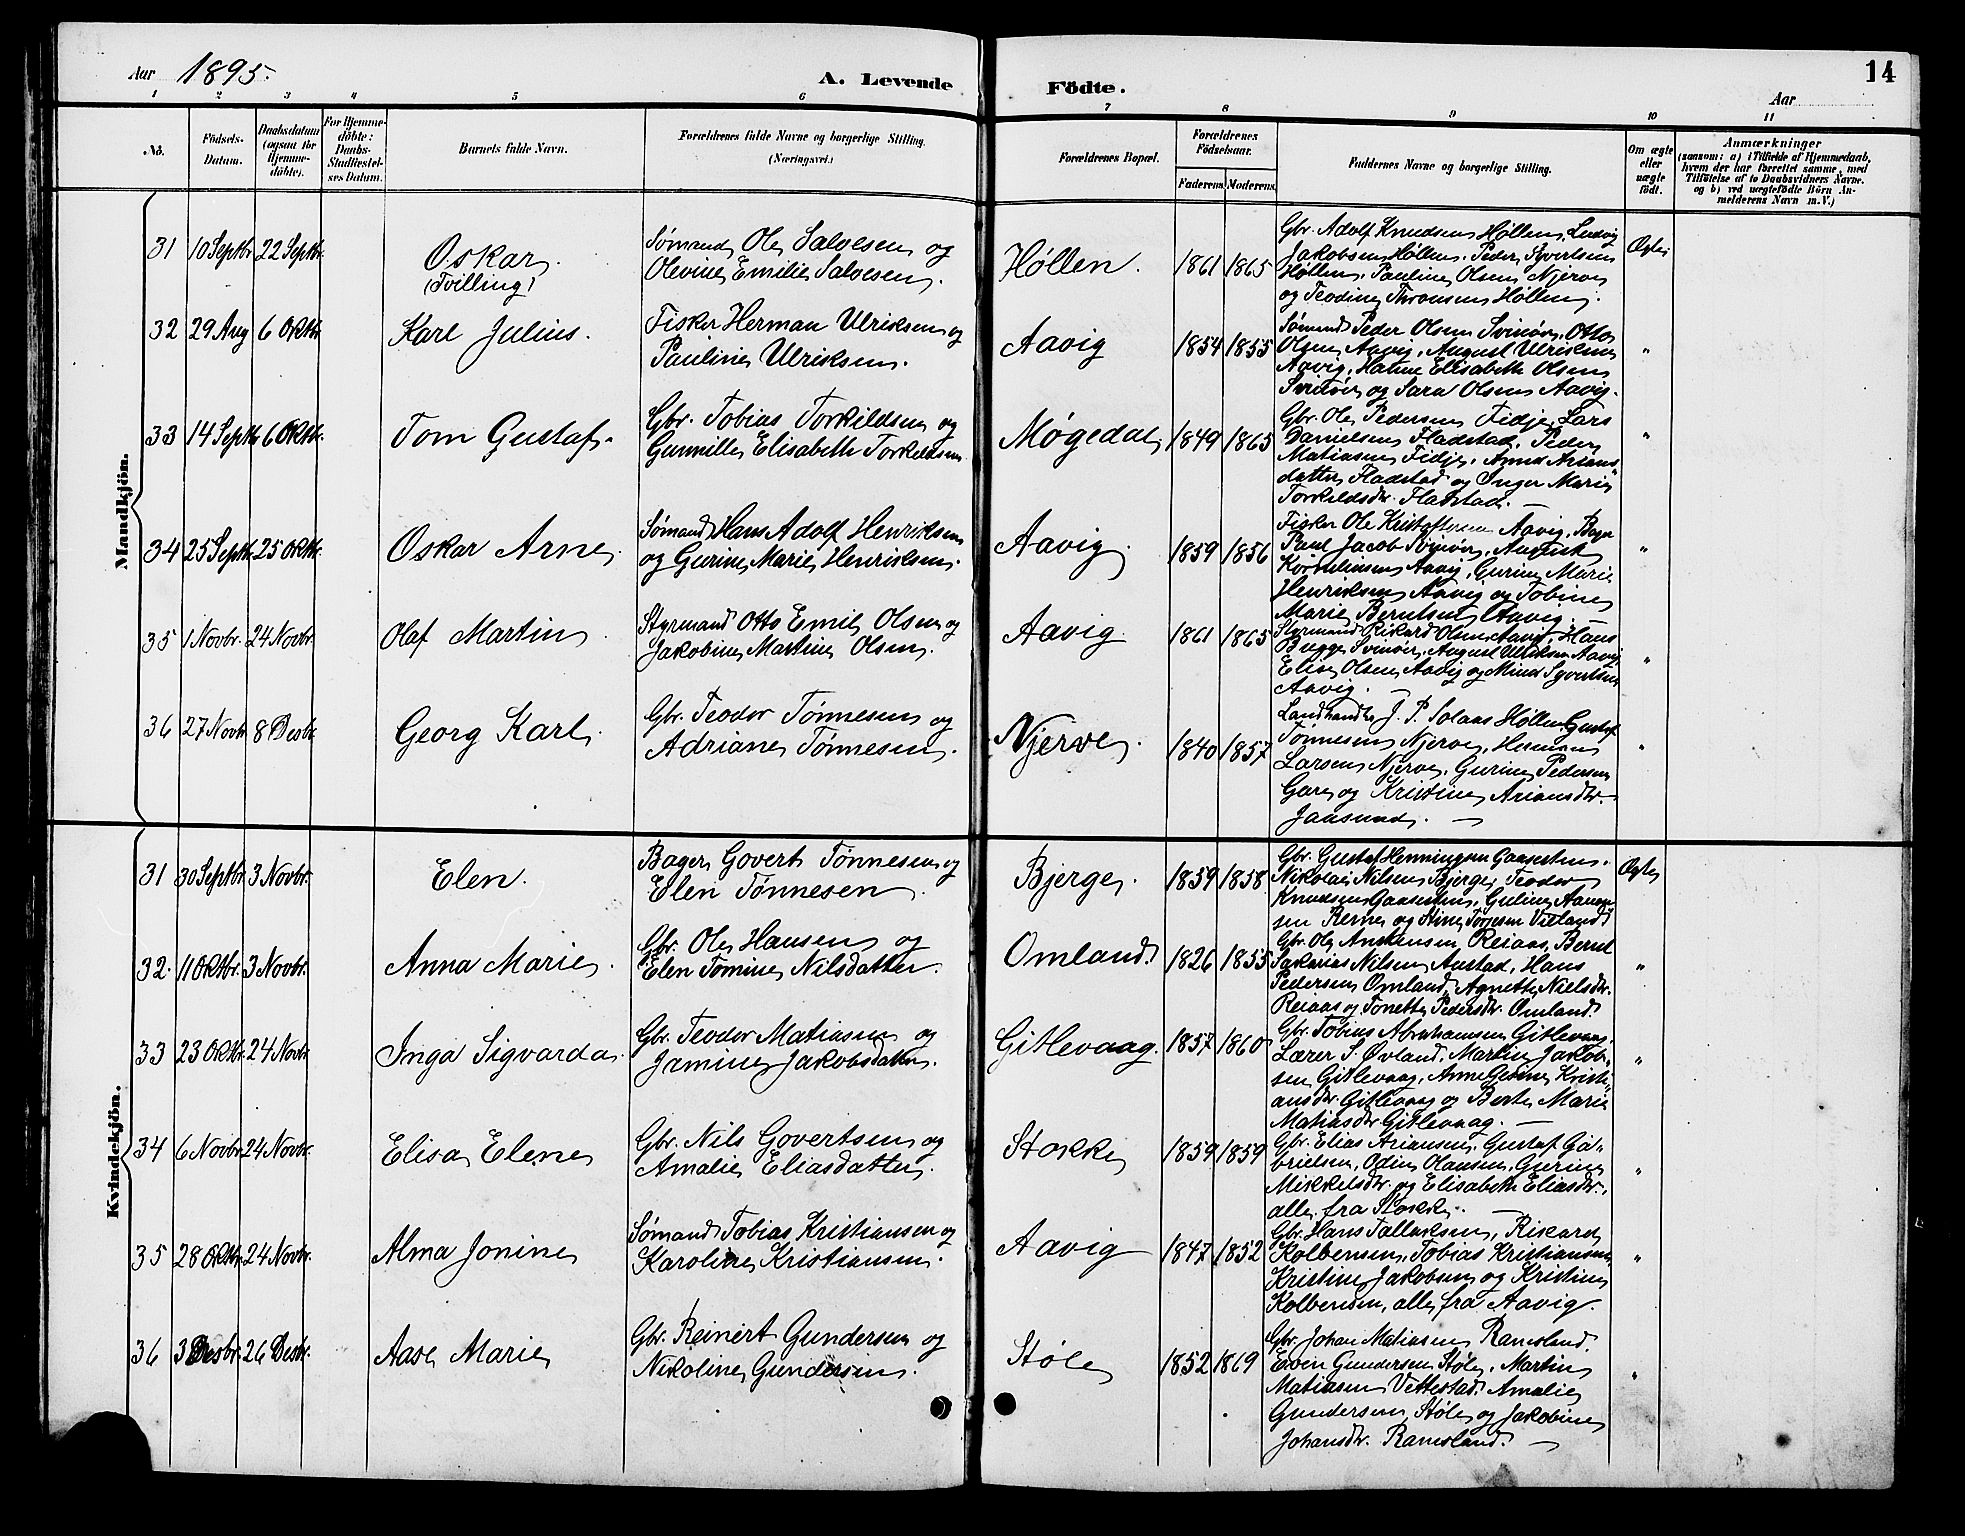 Aar 1895.
A. Levende Födte.
14
Aar
1 2 3 4 5 6 7 8 9 10 11
No.
Födsels-Datum.
Daabsdatum (ogsaa for Hjemme-döbte).
For Hjemme-döbte: Daabs-Stadfæstel-ses Datum.
Barnets fulde Navn.
Forældrenes fulde Navne og borgerlige Stilling. (Næringsvei.)
Forældrenes Bopæl.
Forældrenes Födselsaar.
Faderens. Moderens.
Faddernes Navne og borgerlige Stilling.
Om ægte eller uægte födt.
Anmærkninger
(saasom: a) i Tilfælde af Hjemmedaab,
hvem der har forrettet samme, med
Tilföielse af to Daabsvidners Navne.
og b) ved uægtefödte Börn An-
melderens Navn m.V.)
Mandkjön.
31 10 Septbr. 22 Septbr. Oskar. (Tvilling)
Sømand Ole Salvesen og
Olevine Emilie Salvesen.
Høllen. 1861 1865
Gbr. Adolf Knudsen Høllen, Ludvig
Jakobsen Høllen, Peder Syvertsen
Høllen, Pauline Olsen Njerve
og Teodine Thronsen Høllen.
Ægte
32 29 Aug 6 Oktbr. Karl Julius.
Fisker Herman Ulriksen og
Pauline Ulriksen.
Aavig 1854 1855
Sømand Peder Olsen Svinør, Otto
Olsen Aavig, August Ulriksen
Aavig, Hanne Elisabeth Olsen
Svinør og Sara Olsen Aavig.
"
33 14 Septbr 6 Oktbr. Tom Gustaf.
Gbr. Tobias Torkildsen og
Gunnille Elisabeth Torkildsen
Møgedal 1849 1865
Gbr. Ole Pedersen Fidje, Lars
Danielsen Fladstad, Peder
Matiasen Fidje, Anna Arians-
datter Fladstad og Inger Marie
Torkildsdr. Fladstad. —
"
34 25 Septbr. 25 Oktbr. Oskar Arne.
Sømand Hans Adolf Henriksen
og Gurine Marie Henriksen.
Aavig. 1859 1856
Fisker Ole Kristoffersen Aavig, Bager
Paul Jacob Svinør, August
Kornelinsen Aavig, Gurine Marie
Henriksen Aavig og Tobine
Marie Berntsen Aavig. —
"
35 1 Novbr. 24 Novbr. Olaf Martin.
Styrmand Otto Emil Olsen og
Jakobine Martine Olsen.
Aavig. 1861 1865
Styrmand Rikard Olsen Aavig, Hans
Bugge Svinør, August Ulriksen Aavig
Elise Olsen Aavig og Mina Syvertsen
Aavig. —
"
36 27 Novbr 8 Desbr. Georg Karl.
Gbr. Teodor Tønnesen og
Adriane Tønnesen.
Njerve. 1840 1857
Landhandler J. P. Solaas Høllen, Gustaf
Tønnesen Njerve, Herman
Larsen Njerve, Gurine Pedersen
Gare og Kristine Ariansdtr.
Jaasund. —
"
Kvindekjön.
31 30 Septbr. 3 Novbr. Elen.
Bager Govert Tønnesen og
Elen Tønnesen.
Bjerge. 1859 1858
Gbr. Gustaf Henningsen Gaasesten.
Nikolai Nilsen Bjerge, Teodor
Knudsen Gaasesten, Guline Aanen-
sen Berne og Stine Torjesen Vieland
Ægte
32. 11 Oktbr. 3 Novbr. Anna Marie.
Gbr. Ole Hansen og
Elen Tomine Nilsdatter.
Omland. 1826 1855
Gbr. Ole Anstensen Reiaas, Bernt
Sakarias Nilsen Austad, Hans
Pedersen Omland, Agnette Nielsdr.
Reiaas og Tonette Pedersdr. Omland.
"
33 23 Oktbr. 24 Novbr. Inga Sigvarda.
Gbr. Teodor Matiasen og
Jamine Jakobsdatter.
Gitlevaag. 1857 1860
Gbr. Tobias Abrahamsen Gitlevaag,
Lærer S. Øvland, Martin Jakob-
sen Gitlevaag, Anne Gesine Kristi-
ansdr. Gitlevaag og Berte Marie
Matiasdr Gitlevaag. —
"
34 6 Novbr. 24 Novbr. Elisa Elene
Gbr. Nils Govertsen og
Amalie Eliasdatter.
Stokke 1859 1859
Gbr. Elias Ariansen, Gustaf Ga-
brielsen, Odin Olausen, Gurine
Mikkelsdr. og Elisabeth Eliasdr.,
alle fra Stokke. —
"
35 28 Oktbr 24 Novbr. Alma Jonine
Sømand Tobias Kristiansen og
Karoline Kristiansen.
Aavig 1847 1852
Gbr. Hans Tallaksen, Rikard
Kolbensen, Tobias Kristiansen
Kristine Jakobsen og Kristine
Kolbensen, alle fra Aavig.
"
36 3 Desbr. 26 Desbr. Aase Marie
Gbr. Reinert Gundersen og
Nikoline Gundersen.
Støle 1852 1869
Gbr. Johan Matiasen Ramsland.
Even Gundersen Støle, Martin
Matiasen Vettestad, Amalie
Gundersen Støle og Jakobine
Johansdr. Ramsland. —
"